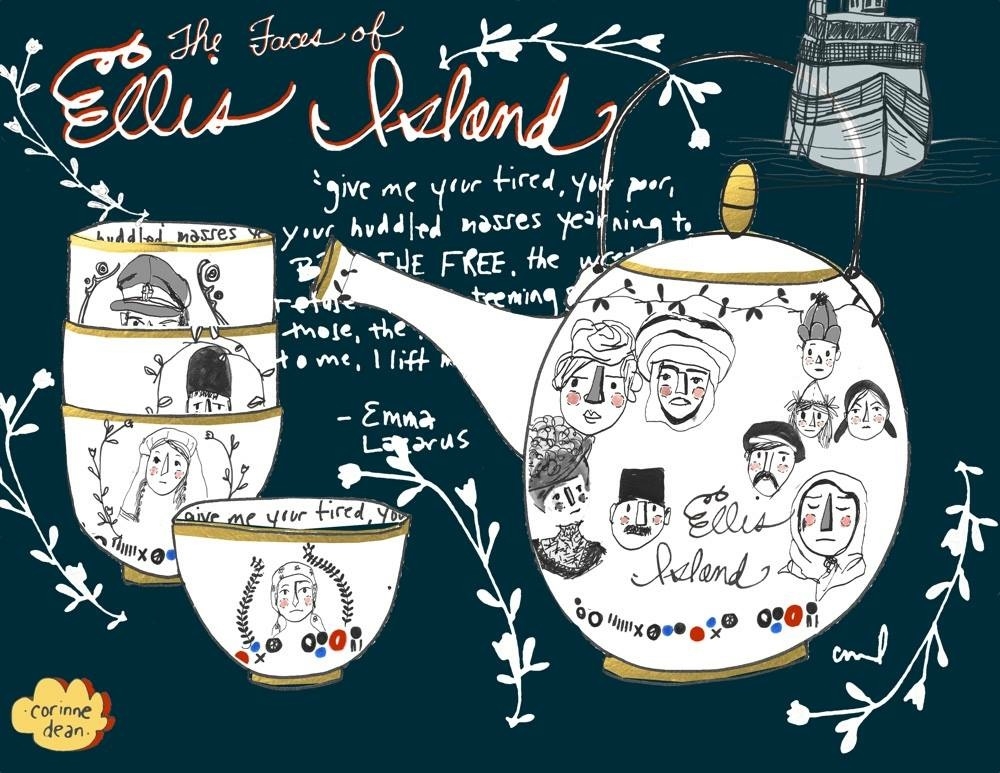 The Faces of
Ellis Island
"give me your tired, your poor,
your huddled masses yearning to
THE FREE, the
refuse teeming
those, the
to me, I lift
- Emma
Lazarus
huddled masses
give me your tired, you
Ellis
Island
corinne
dean.